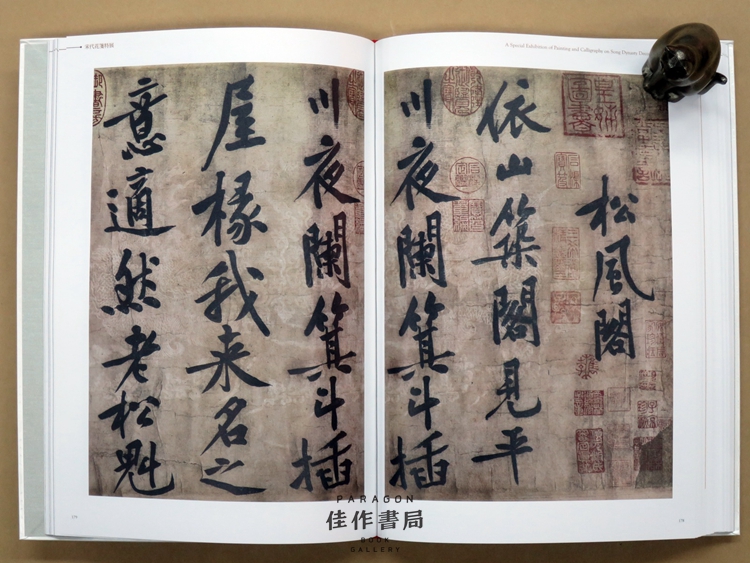 宋代花箋特展
A Special Exhibition of Painting and Calligraphy on Song Dynasty
皇姊圖書
松風閣
依山築閣見平
川夜闌箕斗插
川夜闌箕斗插
屋椽我来名之
意適然老松魁
PARAGON
佳作書局
BOOK
GALLERY